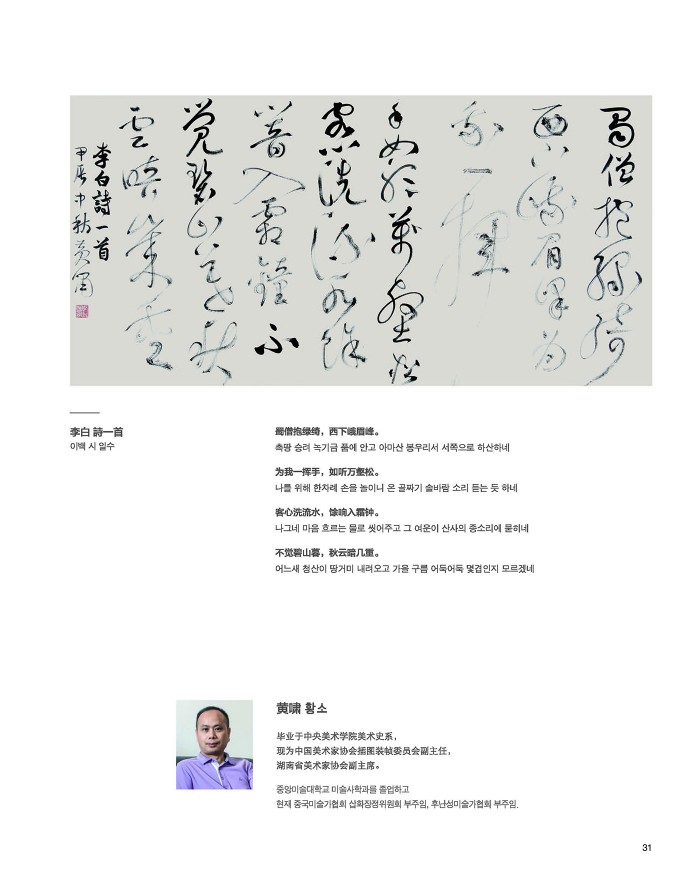 蜀僧抱綠綺
西下峨眉峯为
我一揮
手如聽萬壑松
客心洗流水餘
響入霜鐘不
覺碧山暮秋
雲暗幾重
李白詩一首
甲辰中秋黃嘯
李白 詩一首
이백 시 일수
蜀僧抱绿绮，西下峨眉峰。
촉땅 승려 녹기금 품에 안고 아마산 봉우리서 서쪽으로 하산하네
为我一挥手，如听万壑松。
나를 위해 한차례 손을 놀이니 온 골짜기 솔바람 소리 듣는 듯 하네
客心洗流水，馀响入霜钟。
나그네 마음 흐르는 물로 씻어주고 그 여운이 산사의 종소리에 묻히네
不觉碧山暮，秋云暗几重。
어느새 청산이 땅거미 내려오고 가을 구름 어둑어둑 몇겹인지 모르겠네
黄啸 황소
毕业于中央美术学院美术史系，
现为中国美术家协会插图装帧委员会副主任，
湖南省美术家协会副主席。
중앙미술대학교 미술사학과를 졸업하고
현재 중국미술가협회 삽화장정위원회 부주임, 후난성미술가협회 부주임.
31